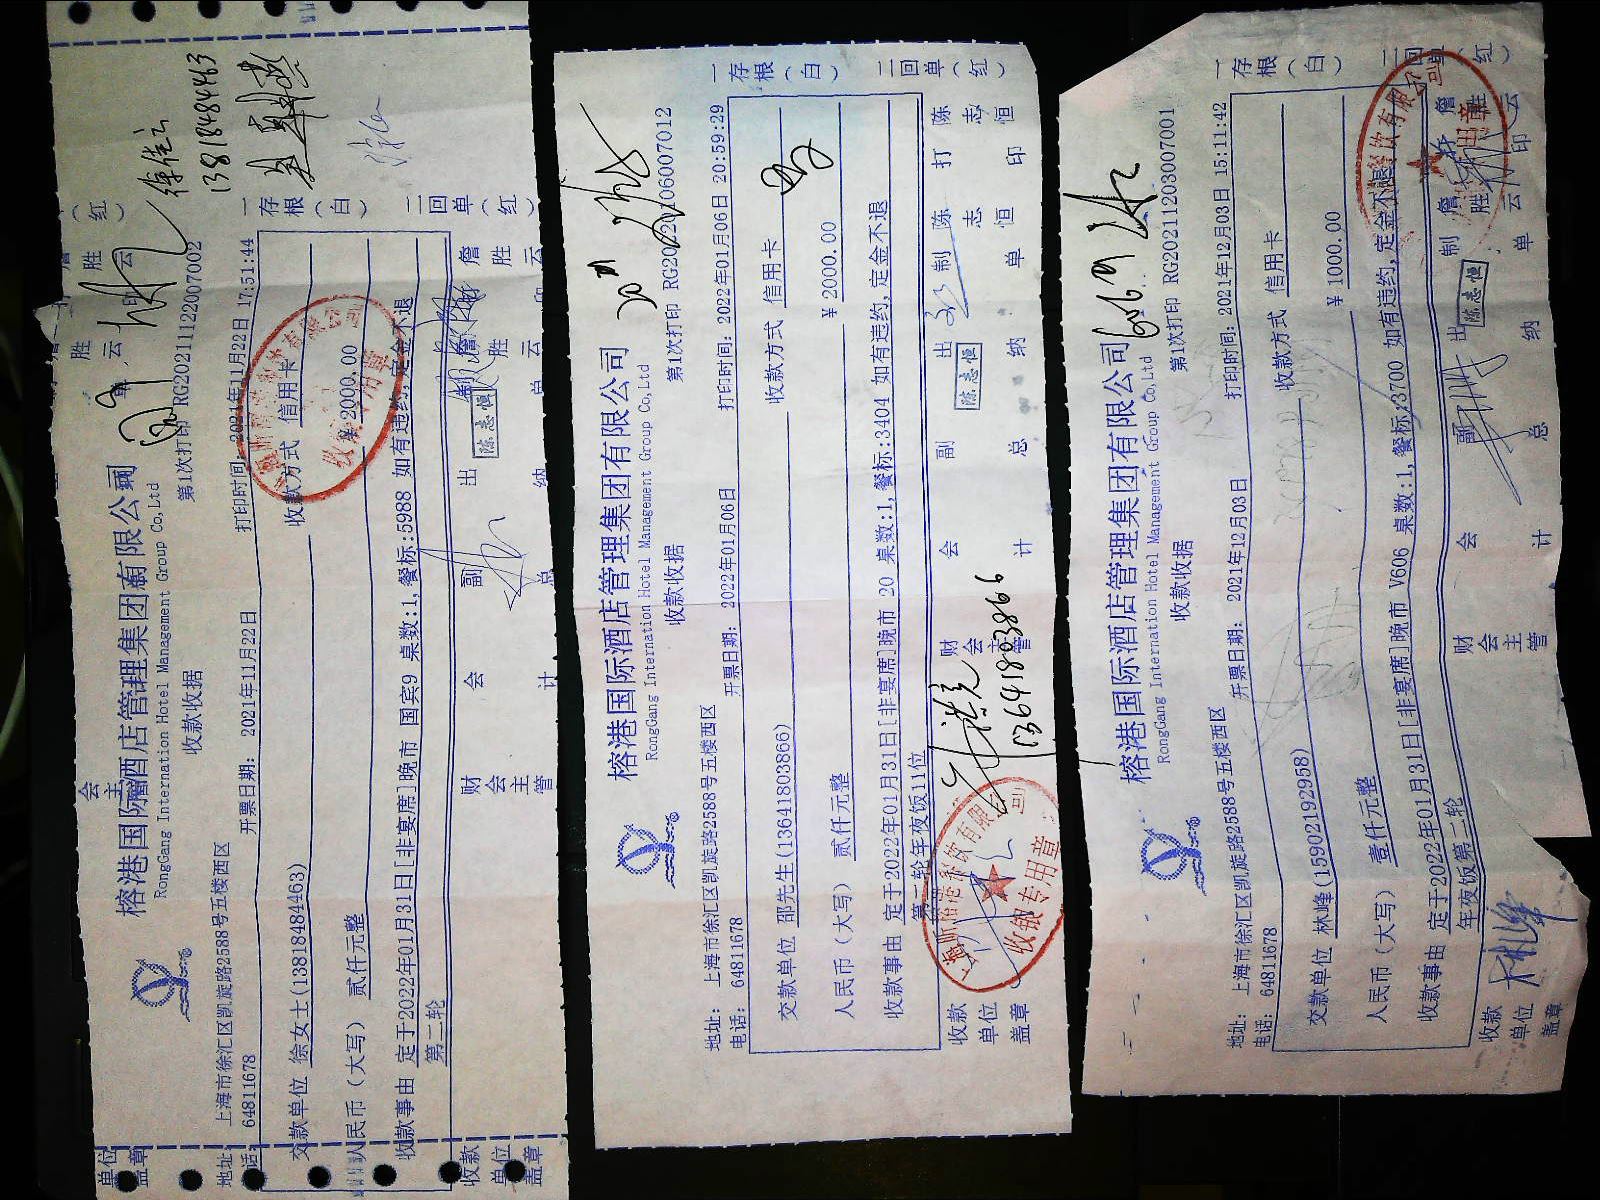 榕港国际酒店管理集团有限公司
RongGang International Hotel Management Group Co,Ltd
收款收据
第1次打印 RG20211122007002
地址: 上海市徐汇区凯旋路2588号五楼西区
电话: 64811678
开票日期: 2021年11月22日
打印时间: 2021年11月22日 17:51:44
交款单位 徐女士(13818484463)
收款方式 信用卡
人民币（大写） 贰仟元整
¥ 2000.00
收款事由 定于2022年01月31日[非宴席]晚市 国宾9 桌数:1,餐标:5988 如有违约,定金不退
第二轮
一存根（白）
二回单（红）
收款单位盖章
财会主管
会计
副总
出纳
陈志恒
詹胜云
13818484463
榕港国际酒店管理集团有限公司
RongGang International Hotel Management Group Co,Ltd
收款收据
第1次打印 RG20220106007012
地址: 上海市徐汇区凯旋路2588号五楼西区
电话: 64811678
开票日期: 2022年01月06日
打印时间: 2022年01月06日 20:59:29
交款单位 邵先生(13641803866)
收款方式 信用卡
人民币（大写） 贰仟元整
¥ 2000.00
收款事由 定于2022年01月31日[非宴席]晚市 20 桌数:1,餐标:3404 如有违约,定金不退
第二轮年夜饭11位
一存根（白）
二回单（红）
收款单位盖章
财会主管
会计
副总
出纳
陈志恒
制单 陈志恒
打印 陈志恒
13641803866
收银专用章
榕港国际酒店管理集团有限公司
RongGang International Hotel Management Group Co,Ltd
收款收据
6069
第1次打印 RG20211203007001
地址: 上海市徐汇区凯旋路2588号五楼西区
电话: 64811678
开票日期: 2021年12月03日
打印时间: 2021年12月03日 15:11:42
交款单位 林峰(15902192958)
收款方式 信用卡
人民币（大写） 壹仟元整
¥ 1000.00
收款事由 定于2022年01月31日[非宴席]晚市 V606 桌数:1,餐标:3700 如有违约,定金不退
年夜饭第二轮
一存根（白）
二回单（红）
收款单位盖章
林峰
财会主管
会计
副总
出纳
陈志恒
制单 詹胜云
打印 詹胜云